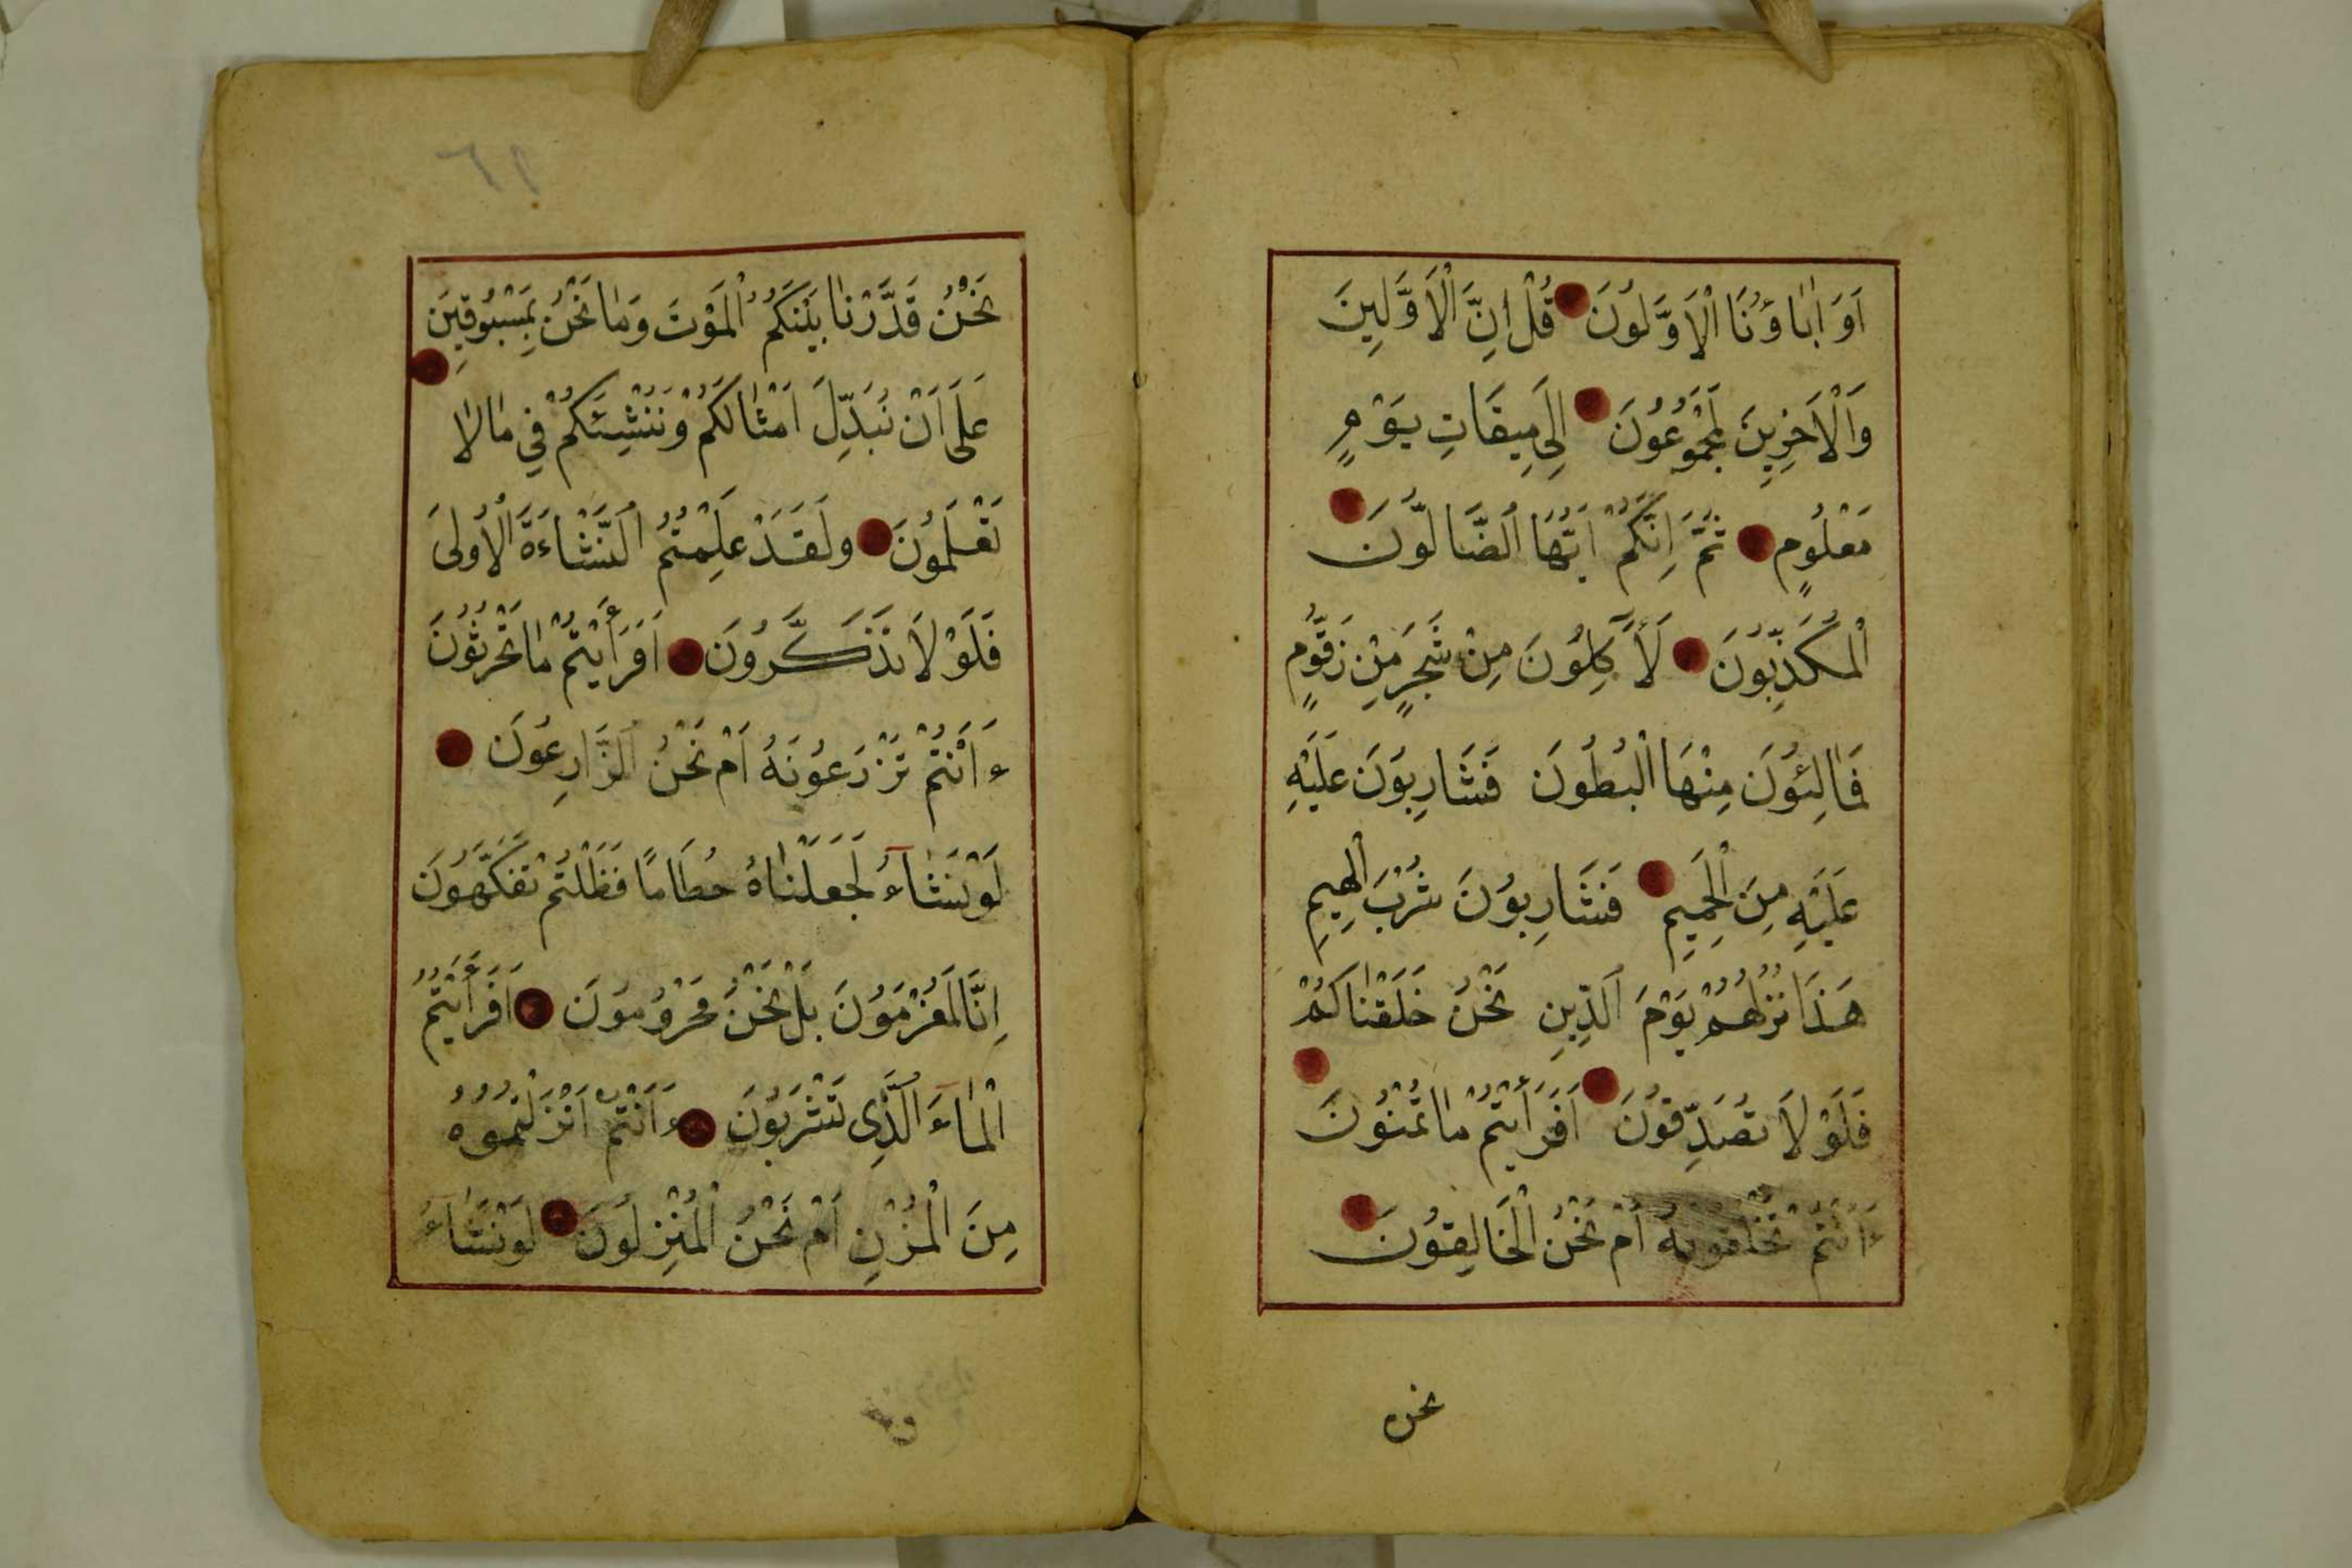 اَوَ اٰبَاؤُنَا الْاَوَّلُونَ قُلْ اِنَّ الْاَوَّلِينَ
وَالْاَخِرِينَ لَمَجْمُوعُونَ اِلَى مِيقَاتِ يَوْمٍ
مَعْلُومٍ ثُمَّ اِنَّكُمْ اَيُّهَا الضَّالُّونَ
الْمُكَذِّبُونَ لَأَكِلُونَ مِنْ شَجَرٍ مِنْ زَقُّومٍ
فَمَالِئُونَ مِنْهَا الْبُطُونَ فَشَارِبُونَ عَلَيْهِ
عَلَيْهِ مِنَ الْحَمِيمِ فَشَارِبُونَ شُرْبَ الْهِيمِ
هَذَا نُزُلُهُمْ يَوْمَ الدِّينِ نَحْنُ خَلَقْنَاكُمْ
فَلَوْلَا تُصَدِّقُونَ اَفَرَأَيْتُمْ مَا تُمْنُونَ
ءَاَنْتُمْ تَخْلُقُونَهُ اَمْ نَحْنُ الْخَالِقُونَ
نحن
٦٩
نَحْنُ قَدَّرْنَا بَيْنَكُمُ الْمَوْتَ وَمَا نَحْنُ بِمَسْبُوقِينَ
عَلَى اَنْ نُبَدِّلَ اَمْثَالَكُمْ وَنُنْشِئَكُمْ فِي مَا لَا
تَعْلَمُونَ وَلَقَدْ عَلِمْتُمُ النَّشْاَءَةَ الْاُولَى
فَلَوْلَا تَذَكَّرُونَ اَفَرَأَيْتُمْ مَا تَحْرُثُونَ
ءَاَنْتُمْ تَزْرَعُونَهُ اَمْ نَحْنُ الزَّارِعُونَ
لَوْ نَشَآءُ لَجَعَلْنَاهُ حُطَامًا فَظَلْتُمْ تَفَكَّهُونَ
اِنَّا لَمُغْرَمُونَ بَلْ نَحْنُ مَحْرُومُونَ اَفَرَأَيْتُمُ
الْمَآءَ الَّذِى تَشْرَبُونَ ءَاَنْتُمْ اَنْزَلْتُمُوهُ
مِنَ الْمُزْنِ اَمْ نَحْنُ الْمُنْزِلُونَ لَوْ نَشَآءُ